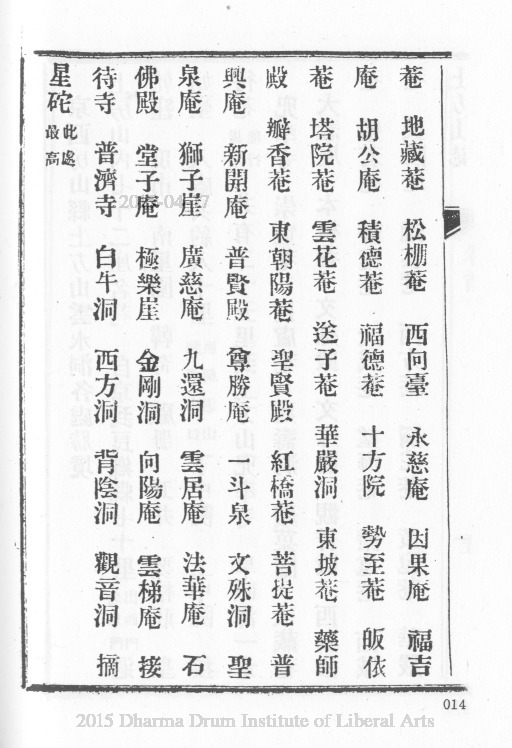 菴　地藏菴　松棚菴　西向臺　永慈庵　因果庵　福吉
庵　胡公庵　積德菴　福德菴　十方院　勢至菴　皈依
菴　塔院菴　雲花菴　送子菴　華嚴洞　東坡菴　藥師
殿　瓣香菴　東朝陽菴　聖賢殿　紅橋菴　菩提菴　普
興庵　新開庵　普賢殿　尊勝庵　一斗泉　文殊洞　聖
泉庵　獅子崖　廣慈庵　九還洞　雲居庵　法華庵　石
佛殿　堂子庵　極樂崖　金剛洞　向陽庵　雲梯庵　接
待寺　普濟寺　白牛洞　西方洞　背陰洞　觀音洞　摘
星砣此處最高
014
2015 Dharma Drum Institute of Liberal Arts